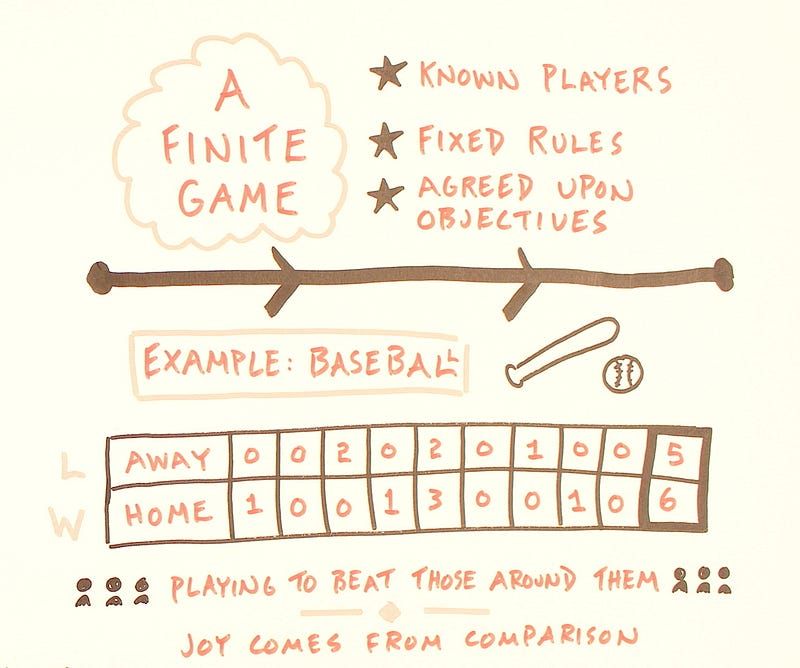 A
FINITE
GAME
★ KNOWN PLAYERS
★ FIXED RULES
★ AGREED UPON
OBJECTIVES
EXAMPLE: BASEBALL
L AWAY 0 0 2 0 2 0 1 0 0 5
W HOME 1 0 0 1 3 0 0 1 0 6
PLAYING TO BEAT THOSE AROUND THEM
JOY COMES FROM COMPARISON